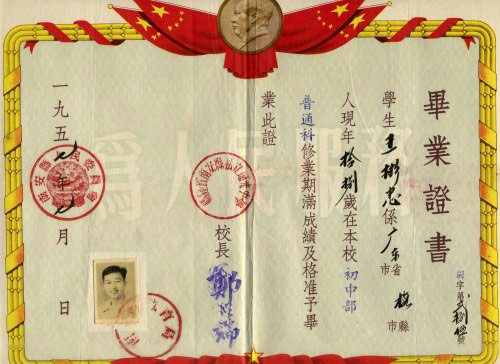 畢業證書
字第 捌 號
學生王彬忠係广东省市 縣市
人現年拾捌歲在本校初中部
普通科修業期滿成績及格准予畢
業此證
校長鄭
一九五七年七月 日
爲人民服務